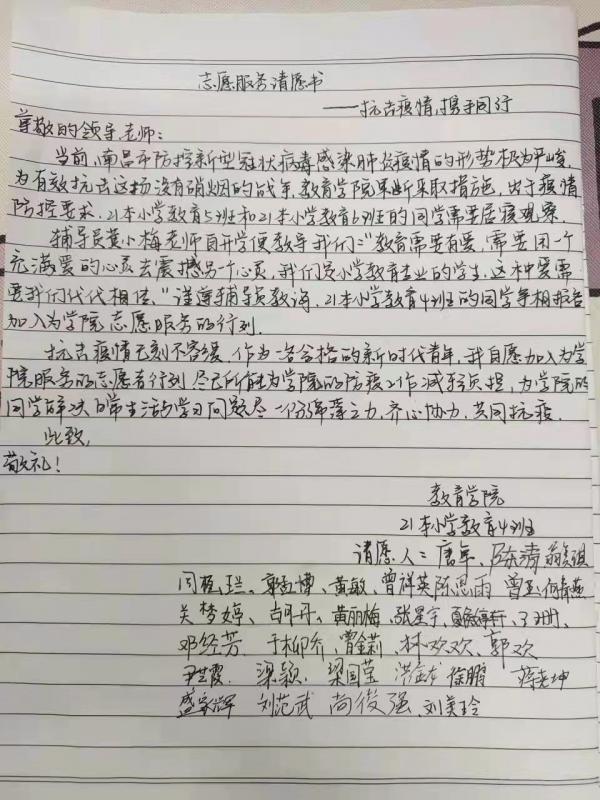 志愿服务请愿书
——抗击疫情,携手同行
尊敬的领导、老师:
当前,南昌市防控新型冠状病毒感染肺炎疫情的形势极为严峻,
为有效抗击这场没有硝烟的战争,教育学院果断采取措施,出于疫情
防控要求,21本小学教育5班和21本小学教育6班的同学需要居寝观察。
辅导员黄小梅老师自开学便教导我们:“教育需要有爱,需要用一个
充满爱的心灵去震撼另一个心灵,我们是小学教育专业的学生,这种爱需
要我们代代相传。”谨遵辅导员教诲,21本小学教育4班的同学争相报名
加入为学院志愿服务的行列。
抗击疫情无刻不容缓,作为一名合格的新时代青年,我自愿加入为学
院服务的志愿者行列,尽己所能为学院的防疫工作减轻负担,为学院的
同学解决日常生活与学习问题尽一份绵薄之力,齐心协力,共同抗疫。
此致,
敬礼!
教育学院
21本小学教育4班
请愿人:唐年、陈清
郭红博、黄敏、曾祥英、陈思雨 曾玉
关梦婷、黄丽梅、张星宇、
邓经芳、于柳乔、曾金莉、林欢欢、郭欢
尹芷霞、梁颖、梁国莹 徐鹏
盛家辉 刘范武 尚俊强、刘美玲